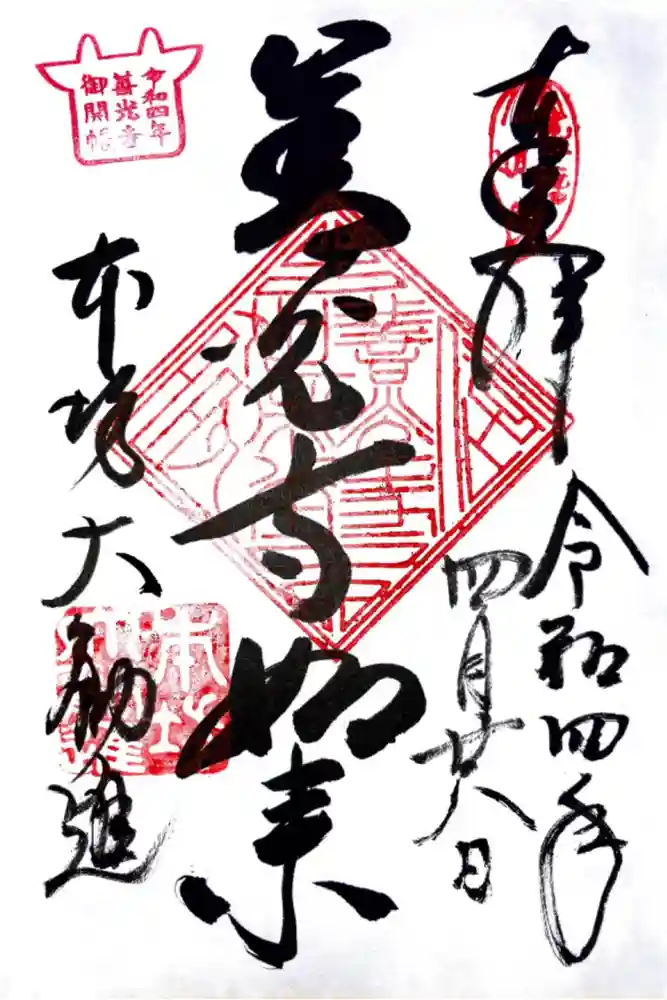 奉拝
令和四年
四月廿八日
善光寺如来
令和四年
善光寺
御開帳
本坊大勧進